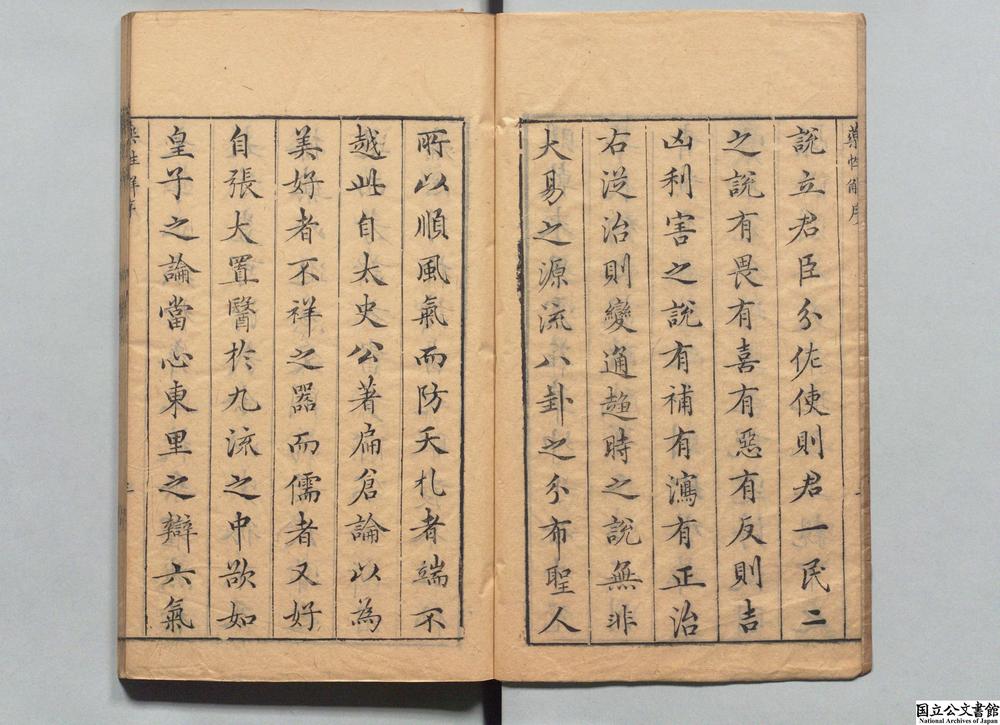 藥性解序
說立君臣分佐使則君一民二
之說有畏有喜有惡有反則吉
凶利害之說有補有瀉有正治
右從治則變通趨時之說無非
大易之源流八卦之分布聖人
所以順風氣而防夭札者端不
越此自太史公著扁倉論以為
美好者不祥之器而儒者又好
自張大置醫於九流之中欲如
皇子之論當心東里之辯六氣
藥性解序
国立公文書館
National Archives of Japan